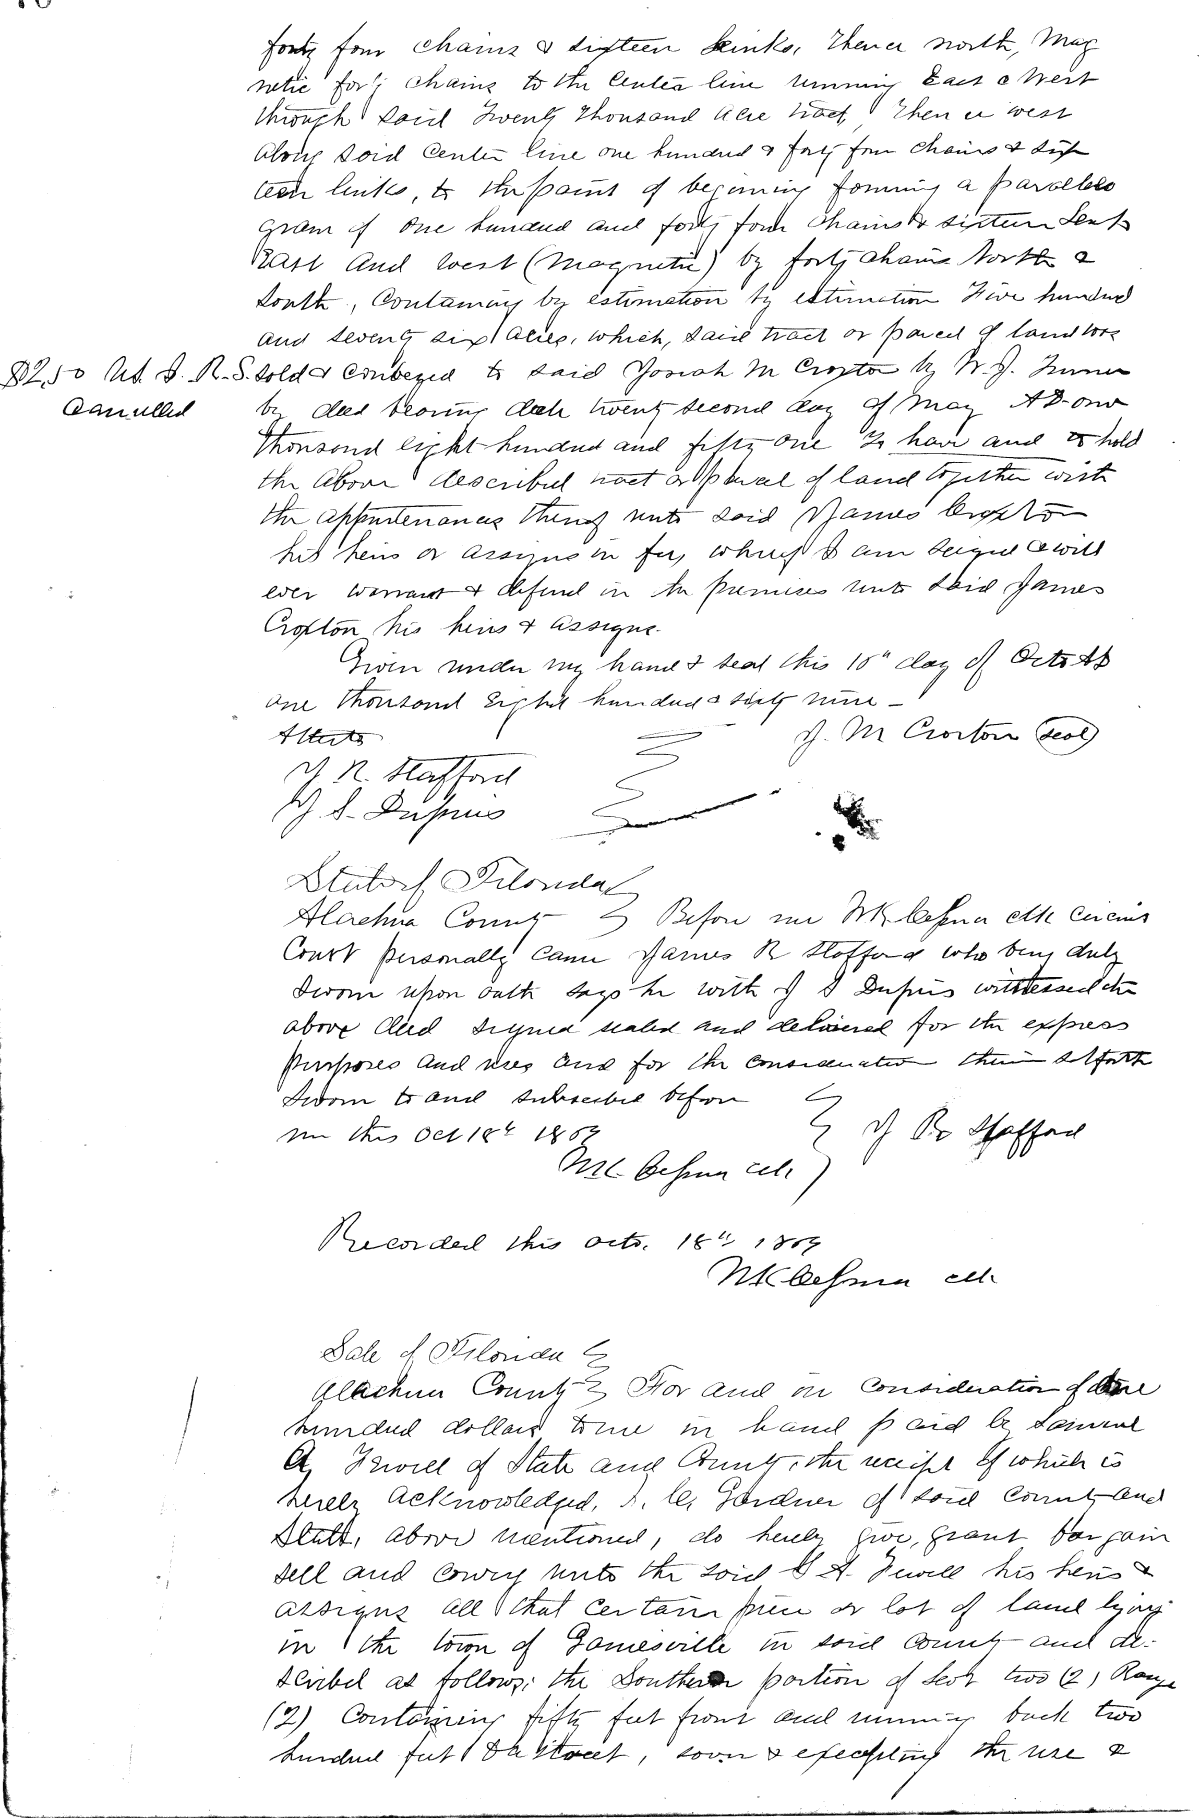 forty four chains & sixteen links, Thence north, Mag
netic forty chains to the Center line running East & West
through said Twenty Thousand Acre tract, Thence west
along said Center line one hundred & forty four chains & six
teen links, to the point of beginning forming a parallelo
gram of one hundred and forty four chains & sixteen links
East and West (Magnetic) by forty chains North &
South, Containing by estimation by estimation Five hundred
and seventy six acres, which, said tract or parcel of land was
$2.50 U.S. I. R. S. sold & conveyed to said Josiah M Croxton by W. J. Turner
Cancelled by deed bearing date twenty second day of May AD one
thousand eight hundred and fifty one To have and to hold
the above described tract or parcel of land together with
the appurtenances thereof unto said James Croxton
his heirs or assigns in fee, whereof I am seized & will
ever warrant & defend in the premises unto said James
Croxton his heirs & assigns.
Given under my hand & seal this 18th day of Octo AD
one thousand Eight hundred & sixty nine —
Attests J. M Croxton (seal)
J R. Stafford
J. S. Dupuis
State of Florida
Alachua County Before me W K Cessna Clk Circuit
Court personally came James R Stafford who being duly
sworn upon oath says he with J S Dupuis witnessed the
above deed signed sealed and delivered for the express
purposes and uses and for the consideration therein set forth
Sworn to and subscribed before
me this Oct 18th 1869 J R Stafford
W K Cessna Clk
Recorded this octo. 18th 1869
W K Cessna Clk
Sate of Florida
Alachua County For and in consideration of One
hundred dollars to me in hand paid by Samuel
A. Jewell of State and County, the receipt of which is
hereby acknowledged, Gardner of said County and
State, above mentioned, do hereby give, grant bargain
sell and convey unto the said S A. Jewell his heirs &
assigns all that certain piece or lot of land lying
in the town of Gainesville in said county and de-
scribed as follows; the Southern portion of Lot two (2) Range
(2) Containing fifty feet front and running back two
hundred feet to a street, & excepting the use &